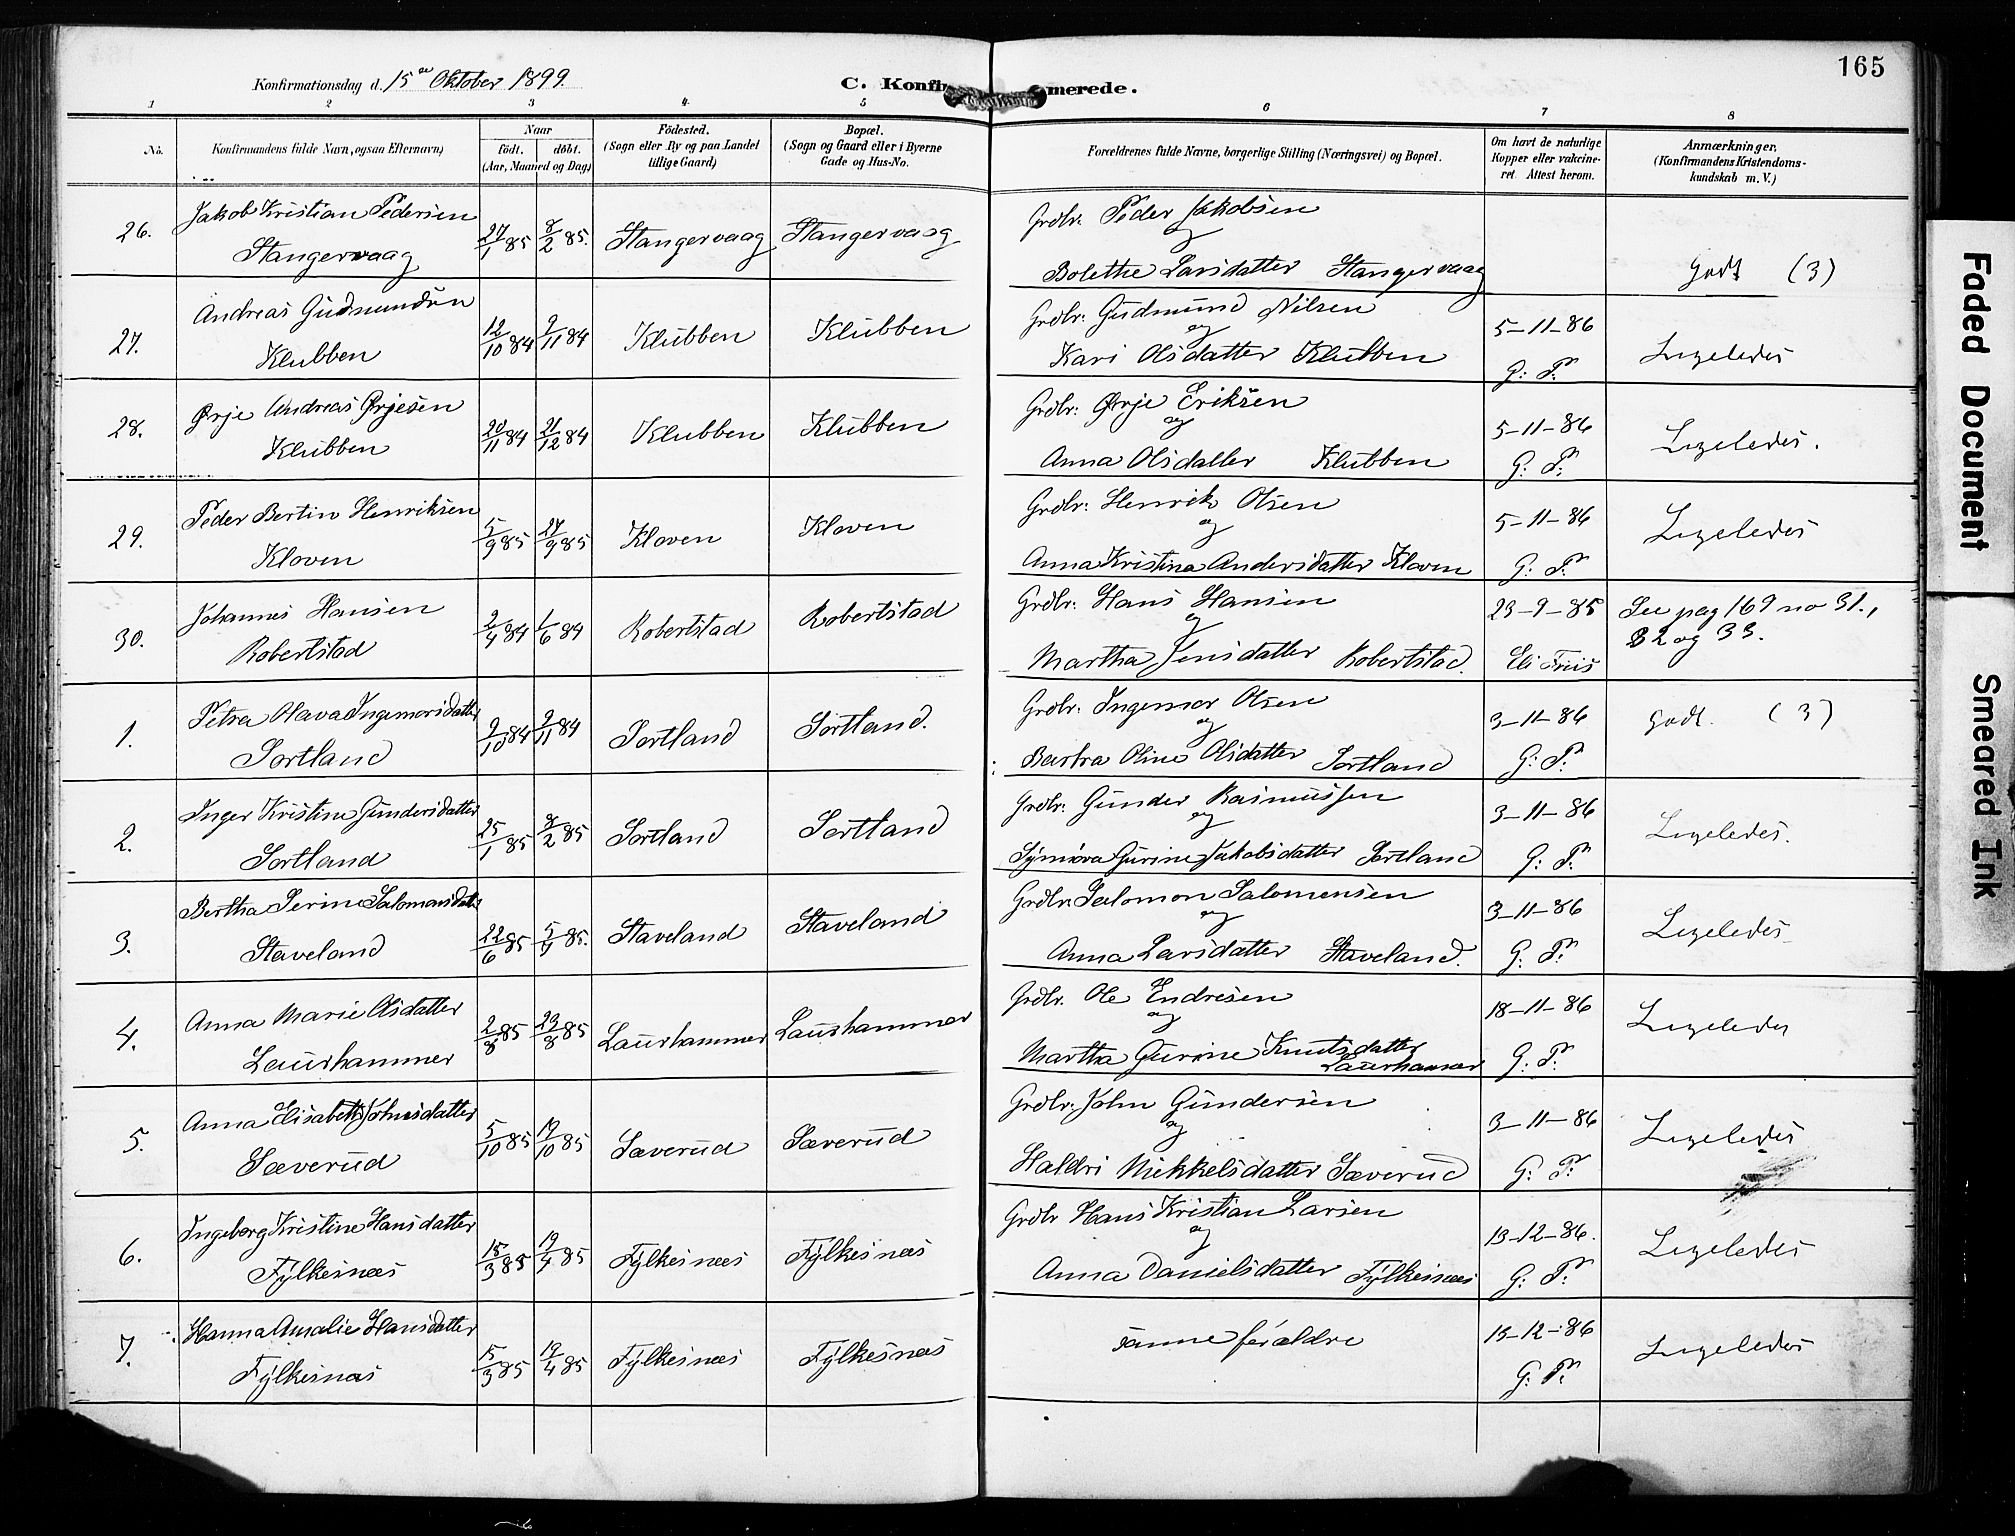 165
Konfirmationsdag d. 15de Oktober 1899.
C. Konfir merede.
1 2 3 4 5 6 7 8
No.
Konfirmandens fulde Navn, ogsaa Efternavn)
Naar
født. døbt.
(Aar, Maaned og Dag)
Fødested.
(Sogn eller By og paa Landet
tillige Gaard)
Bopæl.
(Sogn og Gaard eller i Byerne
Gade og Hus-No.
Forældrenes fulde Navne, borgerlige Stilling (Næringsvei) og Bopæl.
Om havt de naturlige
Kopper eller vakcine-
ret. Attest herom.
Anmærkninger.
(Konfirmandens Kristendoms-
kundskab m. V.)
26. Jakob Kristian Pedersen
Stangervaag
27/1 85 8/2 85. Stangervaag Stangervaag
Grdbr: Peder Jakobsen
og
Bolethe Larsdatter Stangervaag
Godt (3)
27. Andreas Gudmundsen
Klubben
12/10 84 9/11 84 Klubben Klubben
Grdbr: Gudmund Nilsen
og
Kari Olsdatter Klubben
5-11-86
G: P:
Ligeledes
28. Ørje Andreas Ørjesen
Klubben
20/11 84 21/12 84 Klubben Klubben
Grdbr: Ørje Eriksen
og
Anna Olsdatter Klubben
5-11-86
G: P:
Ligeledes.
29. Peder Bertin Henriksen
Kloven
5/9 85 27/9 85 Kloven Kloven
Grdbr: Henrik Olsen
og
Anna Kristina Andersdatter Kloven
5-11-86
G: P:
Ligeledes
30. Johannes Hansen
Robertstad
2/4 84 1/6 84 Robertstad Robertstad
Grdbr: Hans Hansen
og
Martha Jensdatter Robertstad.
23-9-85
Eli Friis
See pag 169 no 31.,
32 og 33.
1. Petra Olava Ingemarsdatter
Sortland
9/10 84 9/11 84 Sortland Sortland.
Grdbr: Ingemar Olsen
og
Bertra Oline Olsdatter Sortland
3-11-86
G: P:
Godt. (3)
2. Inger Kristine Gundersdatter
Sortland
25/1 85 8/2 85 Sortland Sortland
Grdbr: Gunder Rasmussen
og
Synnøva Gurine Jakobsdatter Sortland
3-11-86
G: P:
Ligeledes.
3. Bertha Serine Salomonsdatr
Staveland
22/6 85 5/7 85. Staveland Staveland
Grdbr: Salomon Salomonsen
og
Anna Larsdatter Staveland.
3-11-86
G: P:
Ligeledes
4. Anna Marie Olsdatter
Laurhammer
2/8 85 23/8 85 Laurhammer Laurhammer
Grdbr. Ole Endresen
og
Martha Gurine Knutsdatter
Laurhammer
18-11-86
G: P:
Ligeledes
5. Anna Elisabeth Johnsdatter
Sæverud
5/10 85 17/10 85 Sæverud Sæverud
Grdbr: John Gundersen
og
Haldri Mikkelsdatter Sæverud
3-11-86
G: P:
Ligeledes
6. Ingeborg Kristine Hansdatter
Fylkesnæs
15/3 85 19/4 85 Fylkesnæs Fylkesnæs
Grdbr Hans Kristian Larsen
og
Anna Danielsdatter Fylkesnæs
13-12-86.
G: P:
Ligeledes
7. Hanna Amalie Hansdatter
Fylkesnæs
15/3 85 19/4 85 Fylkesnæs Fylkesnæs
samme forældre
13-12-86
G: P:
Ligeledes
Faded Document
Smeared Ink